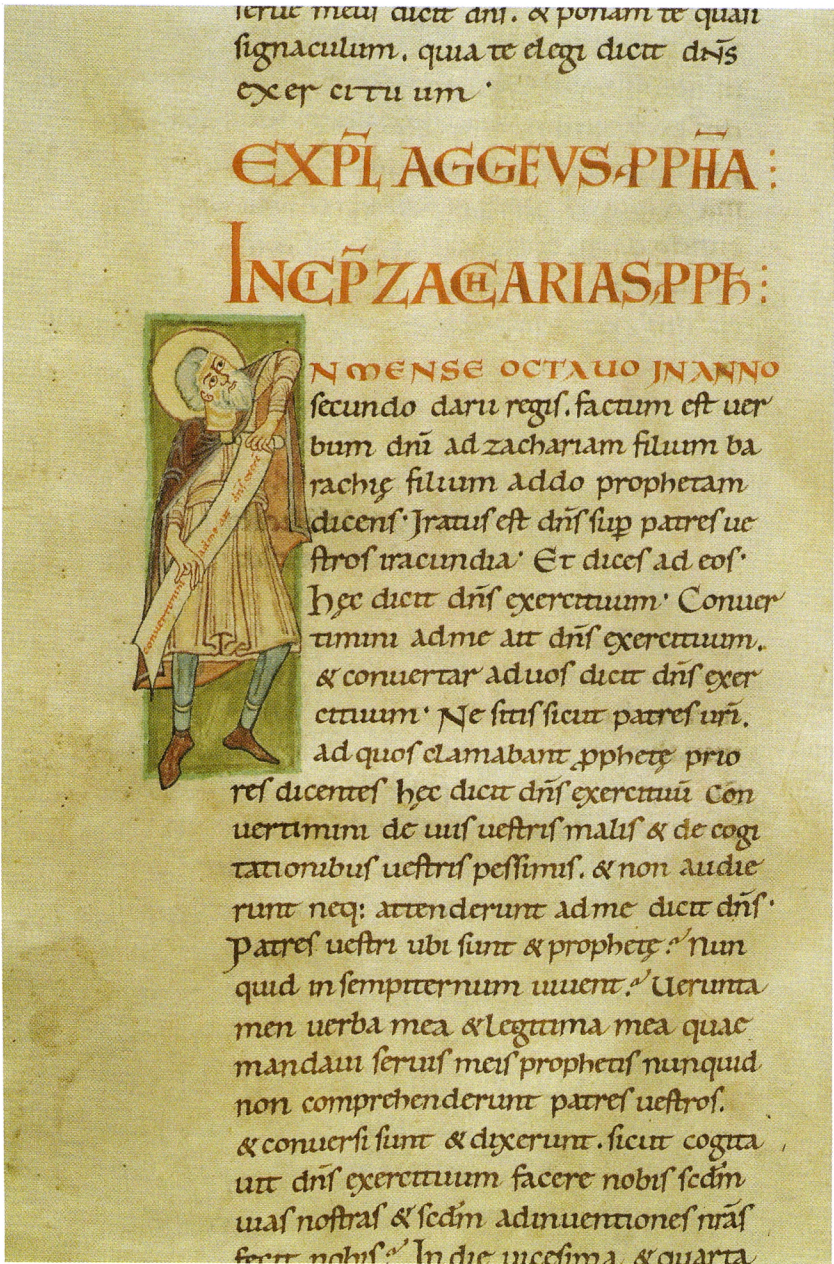 serue meus dicit dñs. & ponam te quasi
signaculum. quia te elegi dicit dñs
exercituum.
EXPL̃ AGGEVS, PPH̃A:
INCIP̃ ZACHARIAS, PPH:
N MENSE OCTAUO IN ANNO
secundo darii regis. factum est uer
bum dñi ad zachariam filium ba
rachię filium addo prophetam
dicens. Iratus est dñs sup patres ue
stros iracundia. Et dices ad eos.
hęc dicit dñs exercituum. Conuer
timini ad me ait dñs exercituum.
& conuertar ad uos dicit dñs exer
cituum. Ne sitis sicut patres urĩ.
ad quos clamabant pphetę prio
res dicentes hęc dicit dñs exercituũ Con
uertimini de uiis uestris malis & de cogi
tationibus uestris pessimis. & non audie
runt neq: attenderunt ad me dicit dñs.
Patres uestri ubi sunt & prophetę? Nun
quid in sempiternum uiuent? Uerunta
men uerba mea & legitima mea quae
mandaui seruis meis prophetis nunquid
non comprehenderunt patres uestros.
& conuersi sunt & dixerunt. sicut cogita
uit dñs exercituum facere nobis scdm̃
uias nostras & scdm̃ adinuentiones nrãs
fecit nobis? In die uicesima & quarta
conuertimini ad me ait dñs exercit